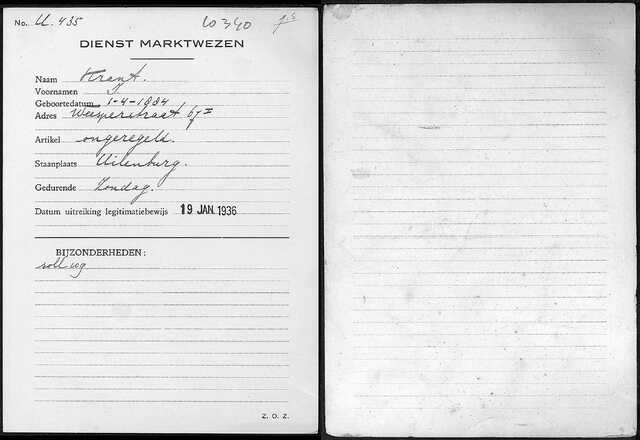 No. U. 435 60340
DIENST MARKTWEZEN
Naam Krant.
Voornamen J.
Geboortedatum 1-4-1904
Adres Weesperstraat 67 II
Artikel ongeregeld.
Staanplaats Uilenburg.
Gedurende Zondag.
Datum uitreiking legitimatiebewijs 19 JAN. 1936
BIJZONDERHEDEN:
Z. O. Z.